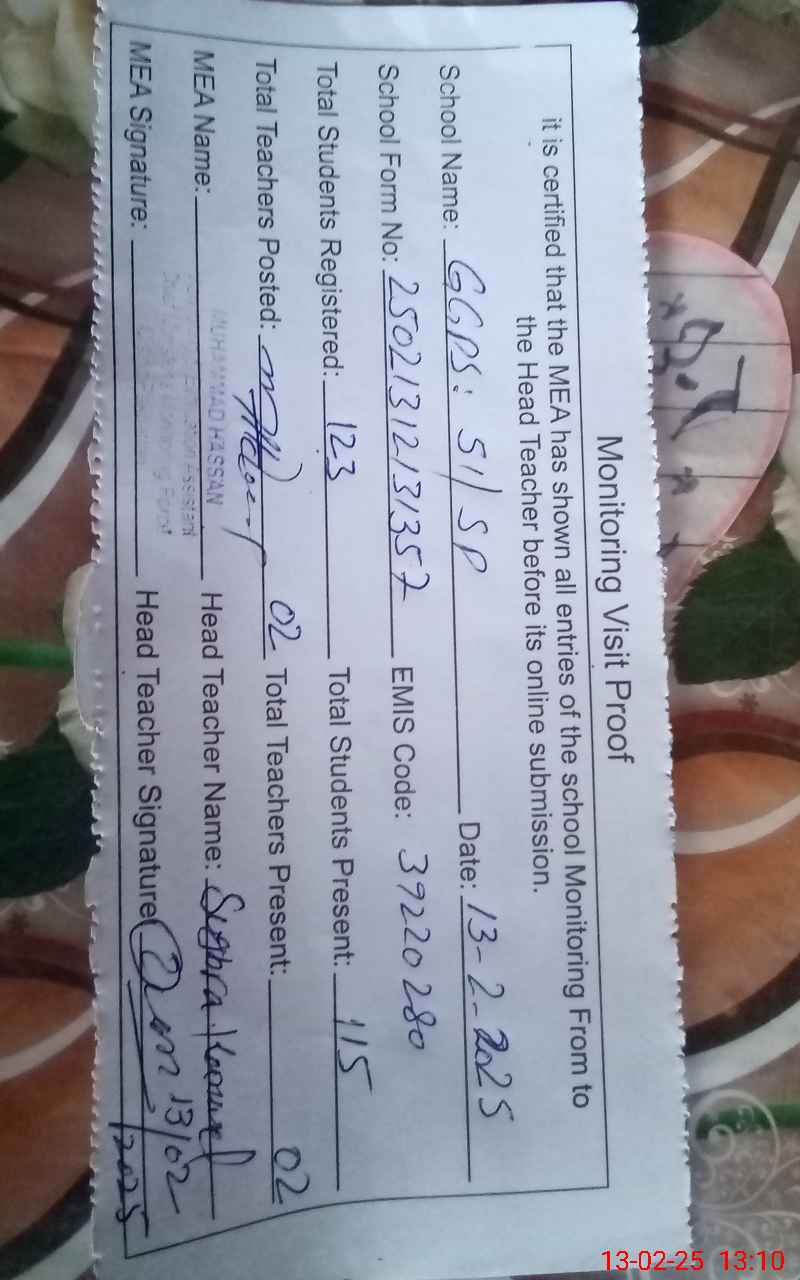 Monitoring Visit Proof
it is certified that the MEA has shown all entries of the school Monitoring From to
the Head Teacher before its online submission.
School Name: GGPS: 51/SP Date: 13-2-2025
School Form No: 25021312131357 EMIS Code: 39220280
Total Students Registered: 123 Total Students Present: 115
Total Teachers Posted: 02 Total Teachers Present: 02
MEA Name: MUHAMMAD HASSAN Head Teacher Name: Sughra
MEA Signature: Head Teacher Signature 13/02/2025
13-02-25 13:10